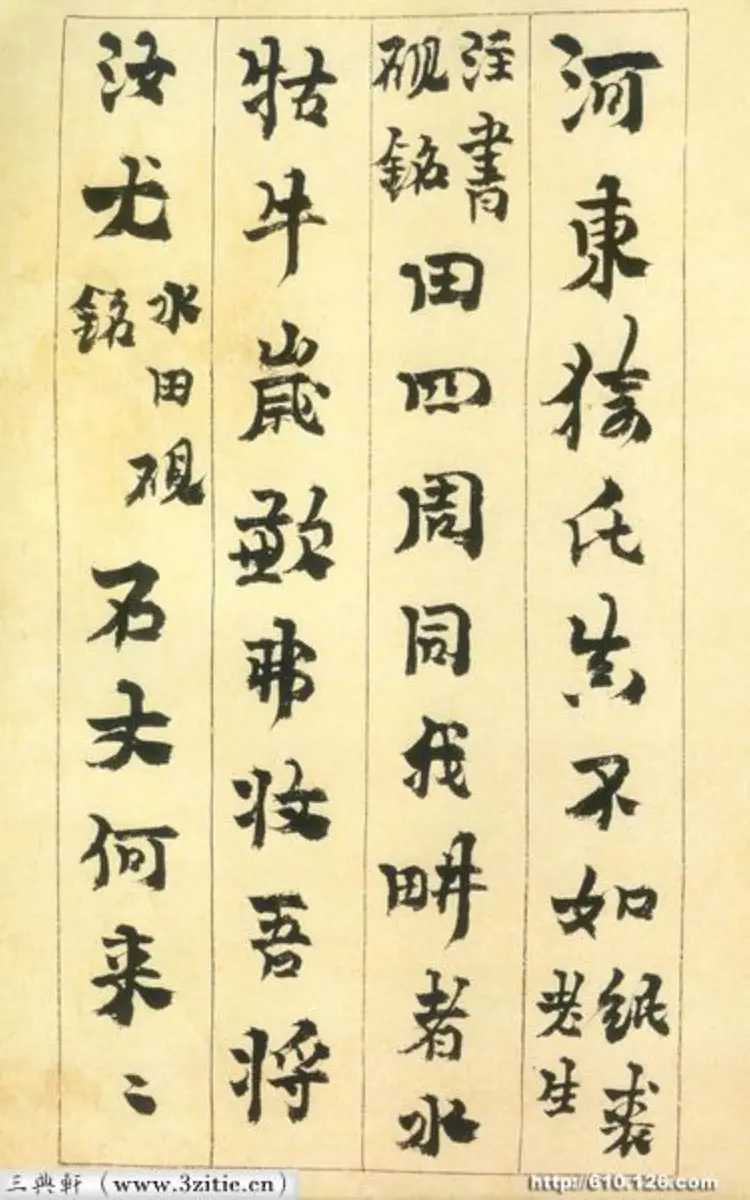 河東猗氏其不如紙裹老生
注書硯銘田四周同我畊者水
牯牛歲歉弗收吾將
汝尤水田硯銘石丈何来〻
三典軒(www.3zitie.cn)
http://610.126.com